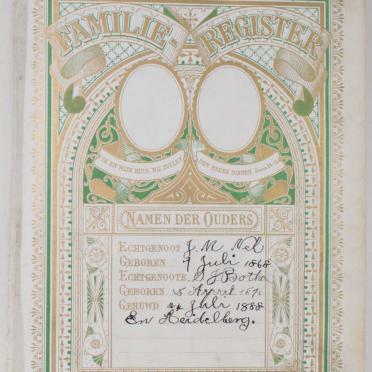 FAMILIE-REGISTER
IK EN MIJN HUIS, WIJ ZULLEN DEN HEERE DIENEN.
NAMEN DER OUDERS
ECHTGENOOT J. M. Nel
GEBOREN 9 Juli 1868
ECHTGENOOTE S J Botha
GEBOREN 5 April 187
GEHUWD Juli 1888
En Heidelberg.